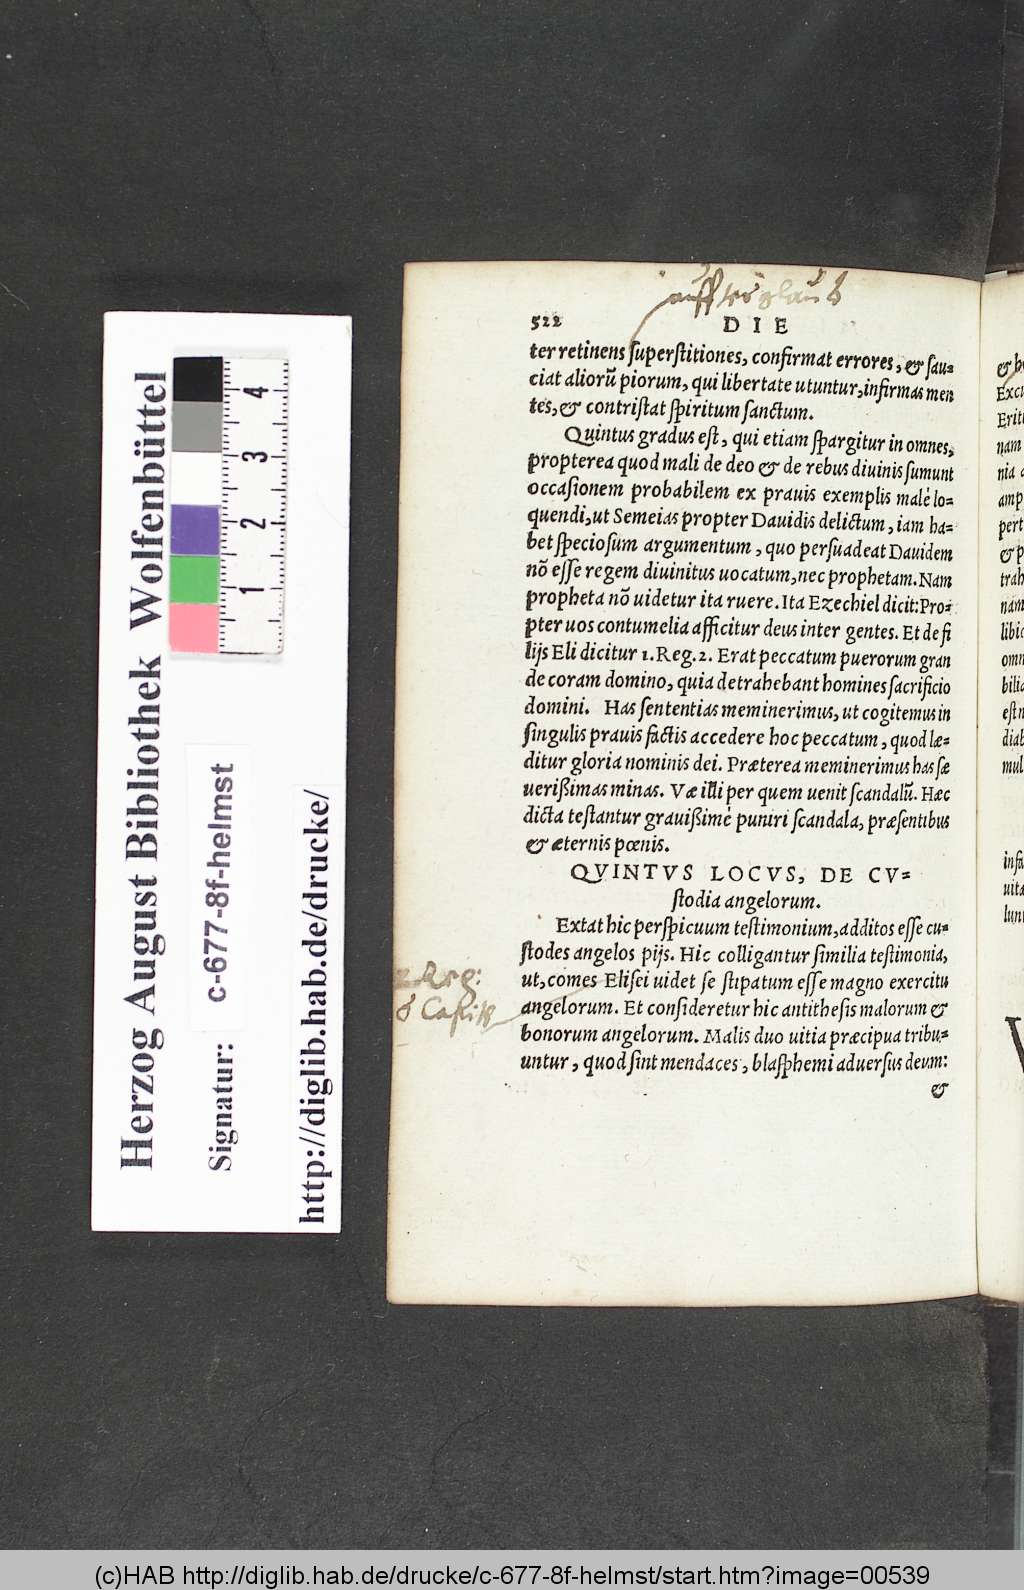 Herzog August Bibliothek Wolfenbüttel
Signatur: c-677-8f-helmst
http://diglib.hab.de/drucke/
1 2 3 4
auffterglaub
522 DIE
ter retinens superstitiones, confirmat errores, & sau-
ciat aliorũ piorum, qui libertate utuntur, infirmas men
tes, & contristat spiritum sanctum.
Quintus gradus est, qui etiam spargitur in omnes,
propterea quod mali de deo & de rebus diuinis sumunt
occasionem probabilem ex prauis exemplis malè lo-
quendi, ut Semeias propter Dauidis delictum, iam ha-
bet speciosum argumentum, quo persuadeat Dauidem
nõ esse regem diuinitus uocatum, nec prophetam. Nam
propheta nõ uidetur ita ruere. Ita Ezechiel dicit: Pro-
pter uos contumelia afficitur deus inter gentes. Et de fi
lijs Eli dicitur 1. Reg. 2. Erat peccatum puerorum gran
de coram domino, quia detrahebant homines sacrificio
domini. Has sententias meminerimus, ut cogitemus in
singulis prauis factis accedere hoc peccatum, quod læ-
ditur gloria nominis dei. Præterea meminerimus has sæ
uerißimas minas. Væ illi per quem uenit scandalũ. Hæc
dicta testantur grauißimè puniri scandala, præsentibus
& æternis pœnis.
QVINTVS LOCVS, DE CV-
stodia angelorum.
Extat hic perspicuum testimonium, additos esse cu-
stodes angelos pijs. Hic colligantur similia testimonia,
ut, comes Elisei uidet se stipatum esse magno exercitu
angelorum. Et consideretur hic antithesis malorum &
bonorum angelorum. Malis duo uitia præcipua tribu-
untur, quod sint mendaces, blasphemi aduersus deum:
&
2. Reg:
6 Capit
(c)HAB http://diglib.hab.de/drucke/c-677-8f-helmst/start.htm?image=00539